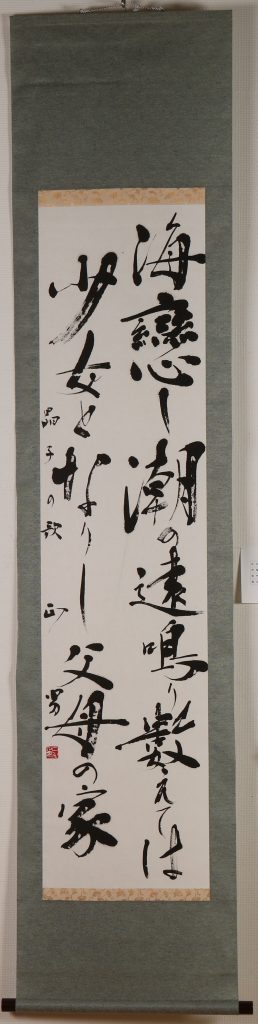 海戀し潮の遠鳴り数えては
少女となりし父母の家
晶子の歌